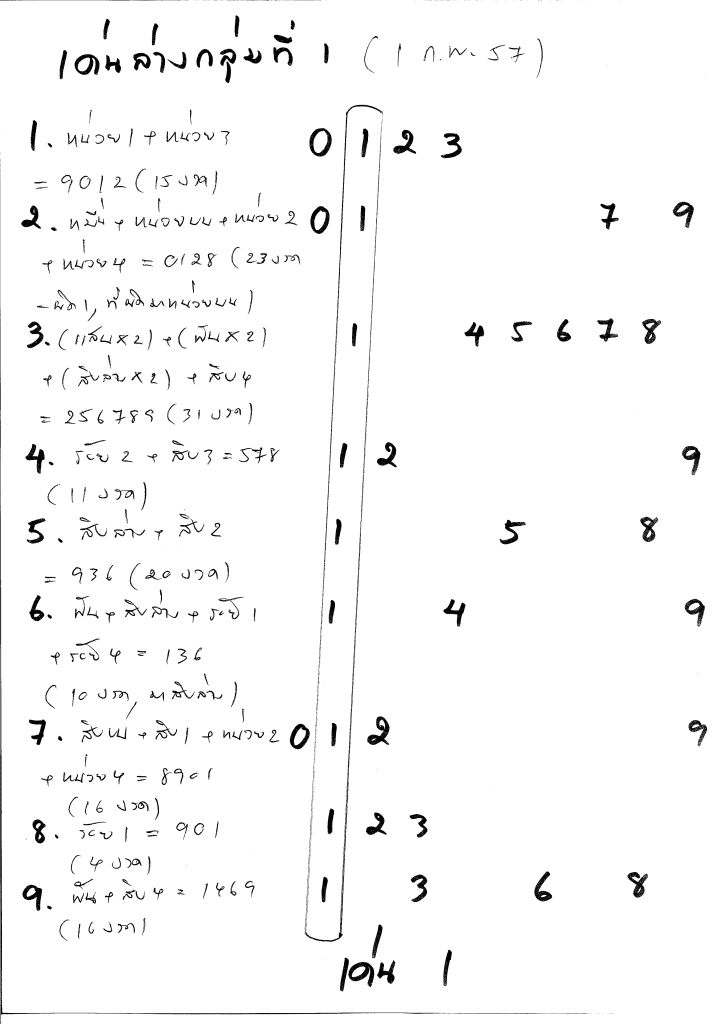 เด่นล่างกลุ่มที่ 1 (1 ก.พ. 57)
1. หน่วย 1 + หน่วย 3 0 1 2 3
= 9012 (15 งวด)
2. หมื่น + หน่วยบน + หน่วย 2 0 1 7 9
+ หน่วย 4 = 0128 (23 งวด
- ผิด 1, ที่ผิดมาหน่วยบน)
3. (แสน x 2) + (พัน x 2) 1 4 5 6 7 8
+ (สิบล่าง x 2) + สิบ 4
= 256789 (31 งวด)
4. ร้อย 2 + สิบ 3 = 578 1 2 9
(11 งวด)
5. สิบล่าง + สิบ 2 1 5 8
= 936 (20 งวด)
6. พัน + สิบล่าง + ร้อย 1 1 4 9
+ ร้อย 4 = 136
(10 งวด, มาสิบล่าง)
7. สิบบน + สิบ 1 + หน่วย 2 0 1 2 9
+ หน่วย 4 = 8901
(16 งวด)
8. ร้อย 1 = 901 1 2 3
(4 งวด)
9. พัน + สิบ 4 = 1469 1 3 6 8
(16 งวด)
เด่น 1